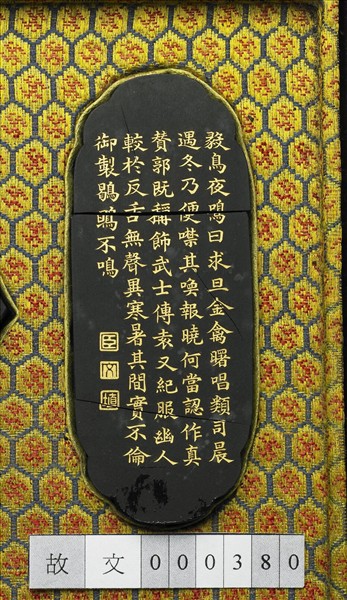 毅鳥夜鳴曰求旦金禽曙唱類司晨
遇冬乃便噤其喚報曉何當認作真
贊郭既稱飾武士傳袁又紀照幽人
較於反舌無聲異寒暑其間實不倫
御製鶡鴠不鳴
臣
文
埴
故文000380